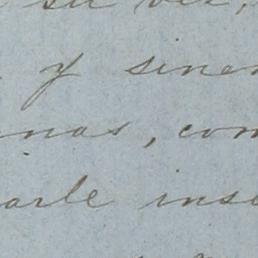 su vez,
y sinem
nas, com
arle inse